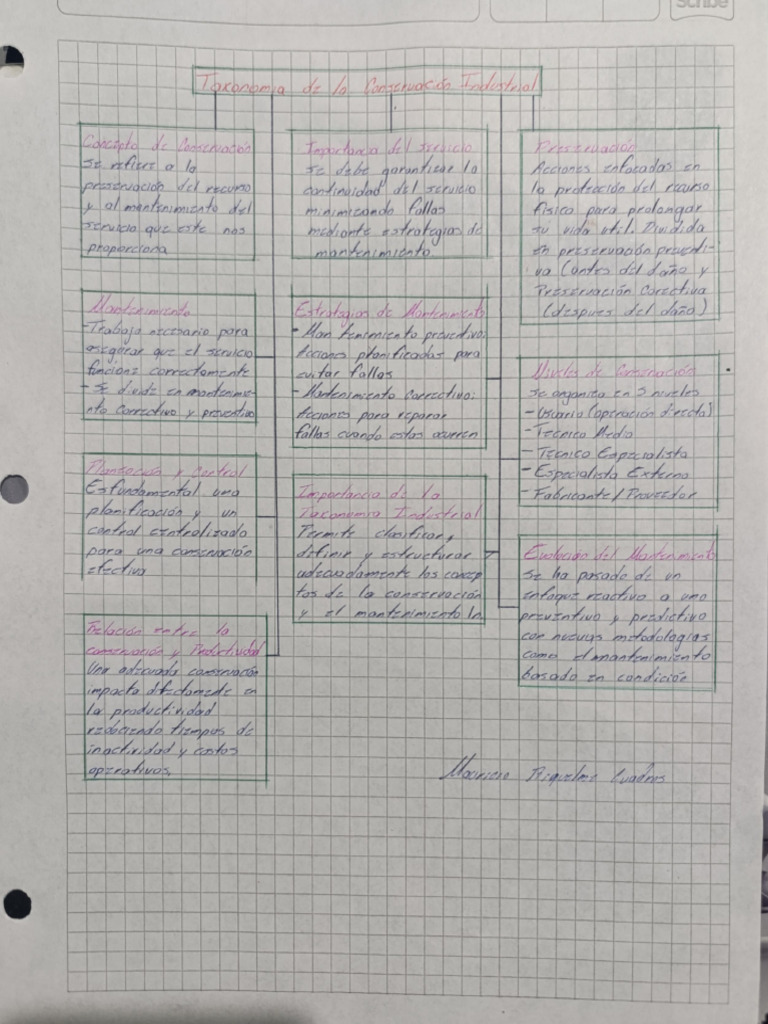 Scribe
Taxonomia de la Conservación Industrial
Concepto de Conservación
se refiere a la
preservación del recurso
y al mantenimiento del
servicio que este nos
proporciona
Importancia del servicio
se debe garantizar la
continuidad del servicio
minimizando fallas
mediante estrategias de
mantenimiento
Preservación
Acciones enfocadas en
la protección del recurso
físico para prolongar
su vida util. Dividida
en preservación preventi-
va (antes del daño y
Preservación Corectiva
(despues del daño)
Mantenimiento
-Trabajo necesario para
asegurar que el servicio
funcione correctamente
- Se divide en mantenimie-
nto Correctivo y preventivo
Estrategias de Mantenimento
- Mantenimiento preventivo:
Acciones planificadas para
evitar fallas
- Mantenimiento Correctivo:
Acciones para reparar
fallas cuando estas ocurren
Niveles de Conservación
se organiza en 5 niveles
- Usuario (operación directa)
- Tecnico Medio
- Tecnico Especialista
- Especialista Externo
- Fabricante/Proveedor
Planeación y Control
Es fundamental una
planificación y un
control centralizado
para una conservación
efectiva
Importancia de la
Taxonomia Industrial
Permite clasificar,
definir y estructurar
adecuadamente los concep
tos de la conservación
y el mantenimiento In
Evolución del Mantenimento
Se ha pasado de un
enfoque reactivo a uno
preventivo y predictivo
con nuevas metodologias
como el mantenimiento
basado en condición
Relación entre la
conservación y Productividad
Una adecuada conservación
impacta directamente en
la productividad
reduciendo tiempos de
inactividad y costos
operativos.
Mauricio Riquelme Cuadros